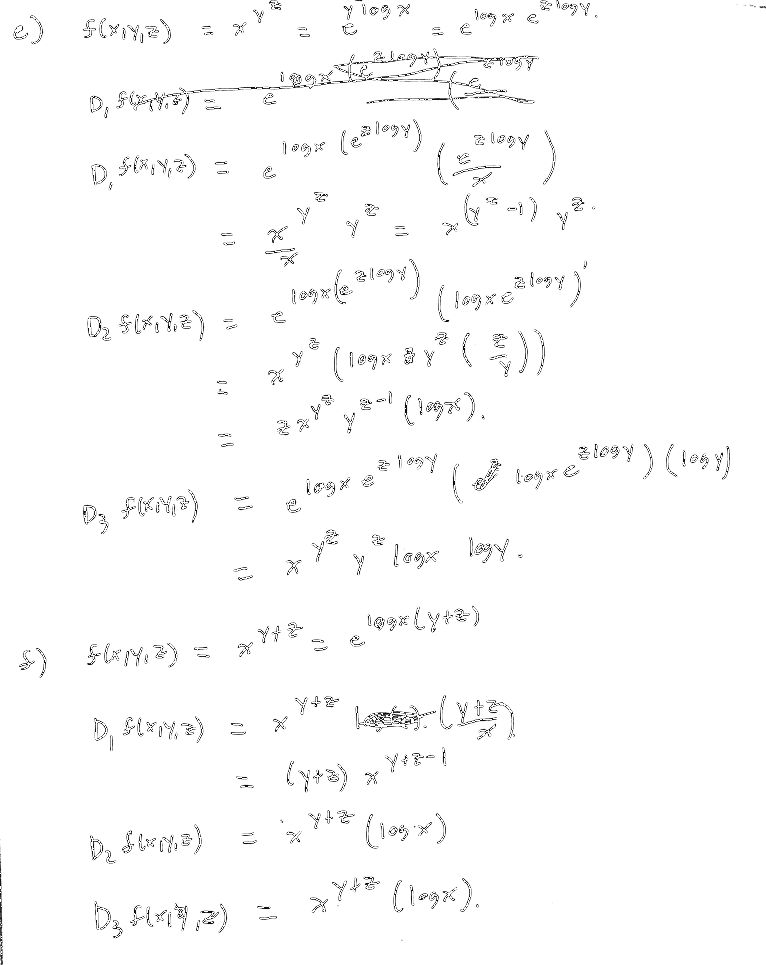 e) f(x,y,z) = x^{y^z} = e^{y^z log x} = e^{log x e^{z log y}}.
D₁ f(x,y,z) = e^{log x (e^{z log y})} (e^{z log y}
D₁ f(x,y,z) = e^{log x (e^{z log y})} (e^{z log y}/x)
= x^{y^z}/x y^z = x^{(y^z -1)} y^z.
D₂ f(x,y,z) = e^{log x (e^{z log y})} (log x e^{z log y})'
= x^{y^z} (log x y^z (z/y))
= z x^{y^z} y^{z-1} (log x).
D₃ f(x,y,z) = e^{log x e^{z log y}} (log x e^{z log y}) (log y)
= x^{y^z} y^z log x log y.
f) f(x,y,z) = x^{y+z} = e^{log x (y+z)}
D₁ f(x,y,z) = x^{y+z} (y+z/x)
= (y+z) x^{y+z-1}
D₂ f(x,y,z) = x^{y+z} (log x)
D₃ f(x,y,z) = x^{y+z} (log x).